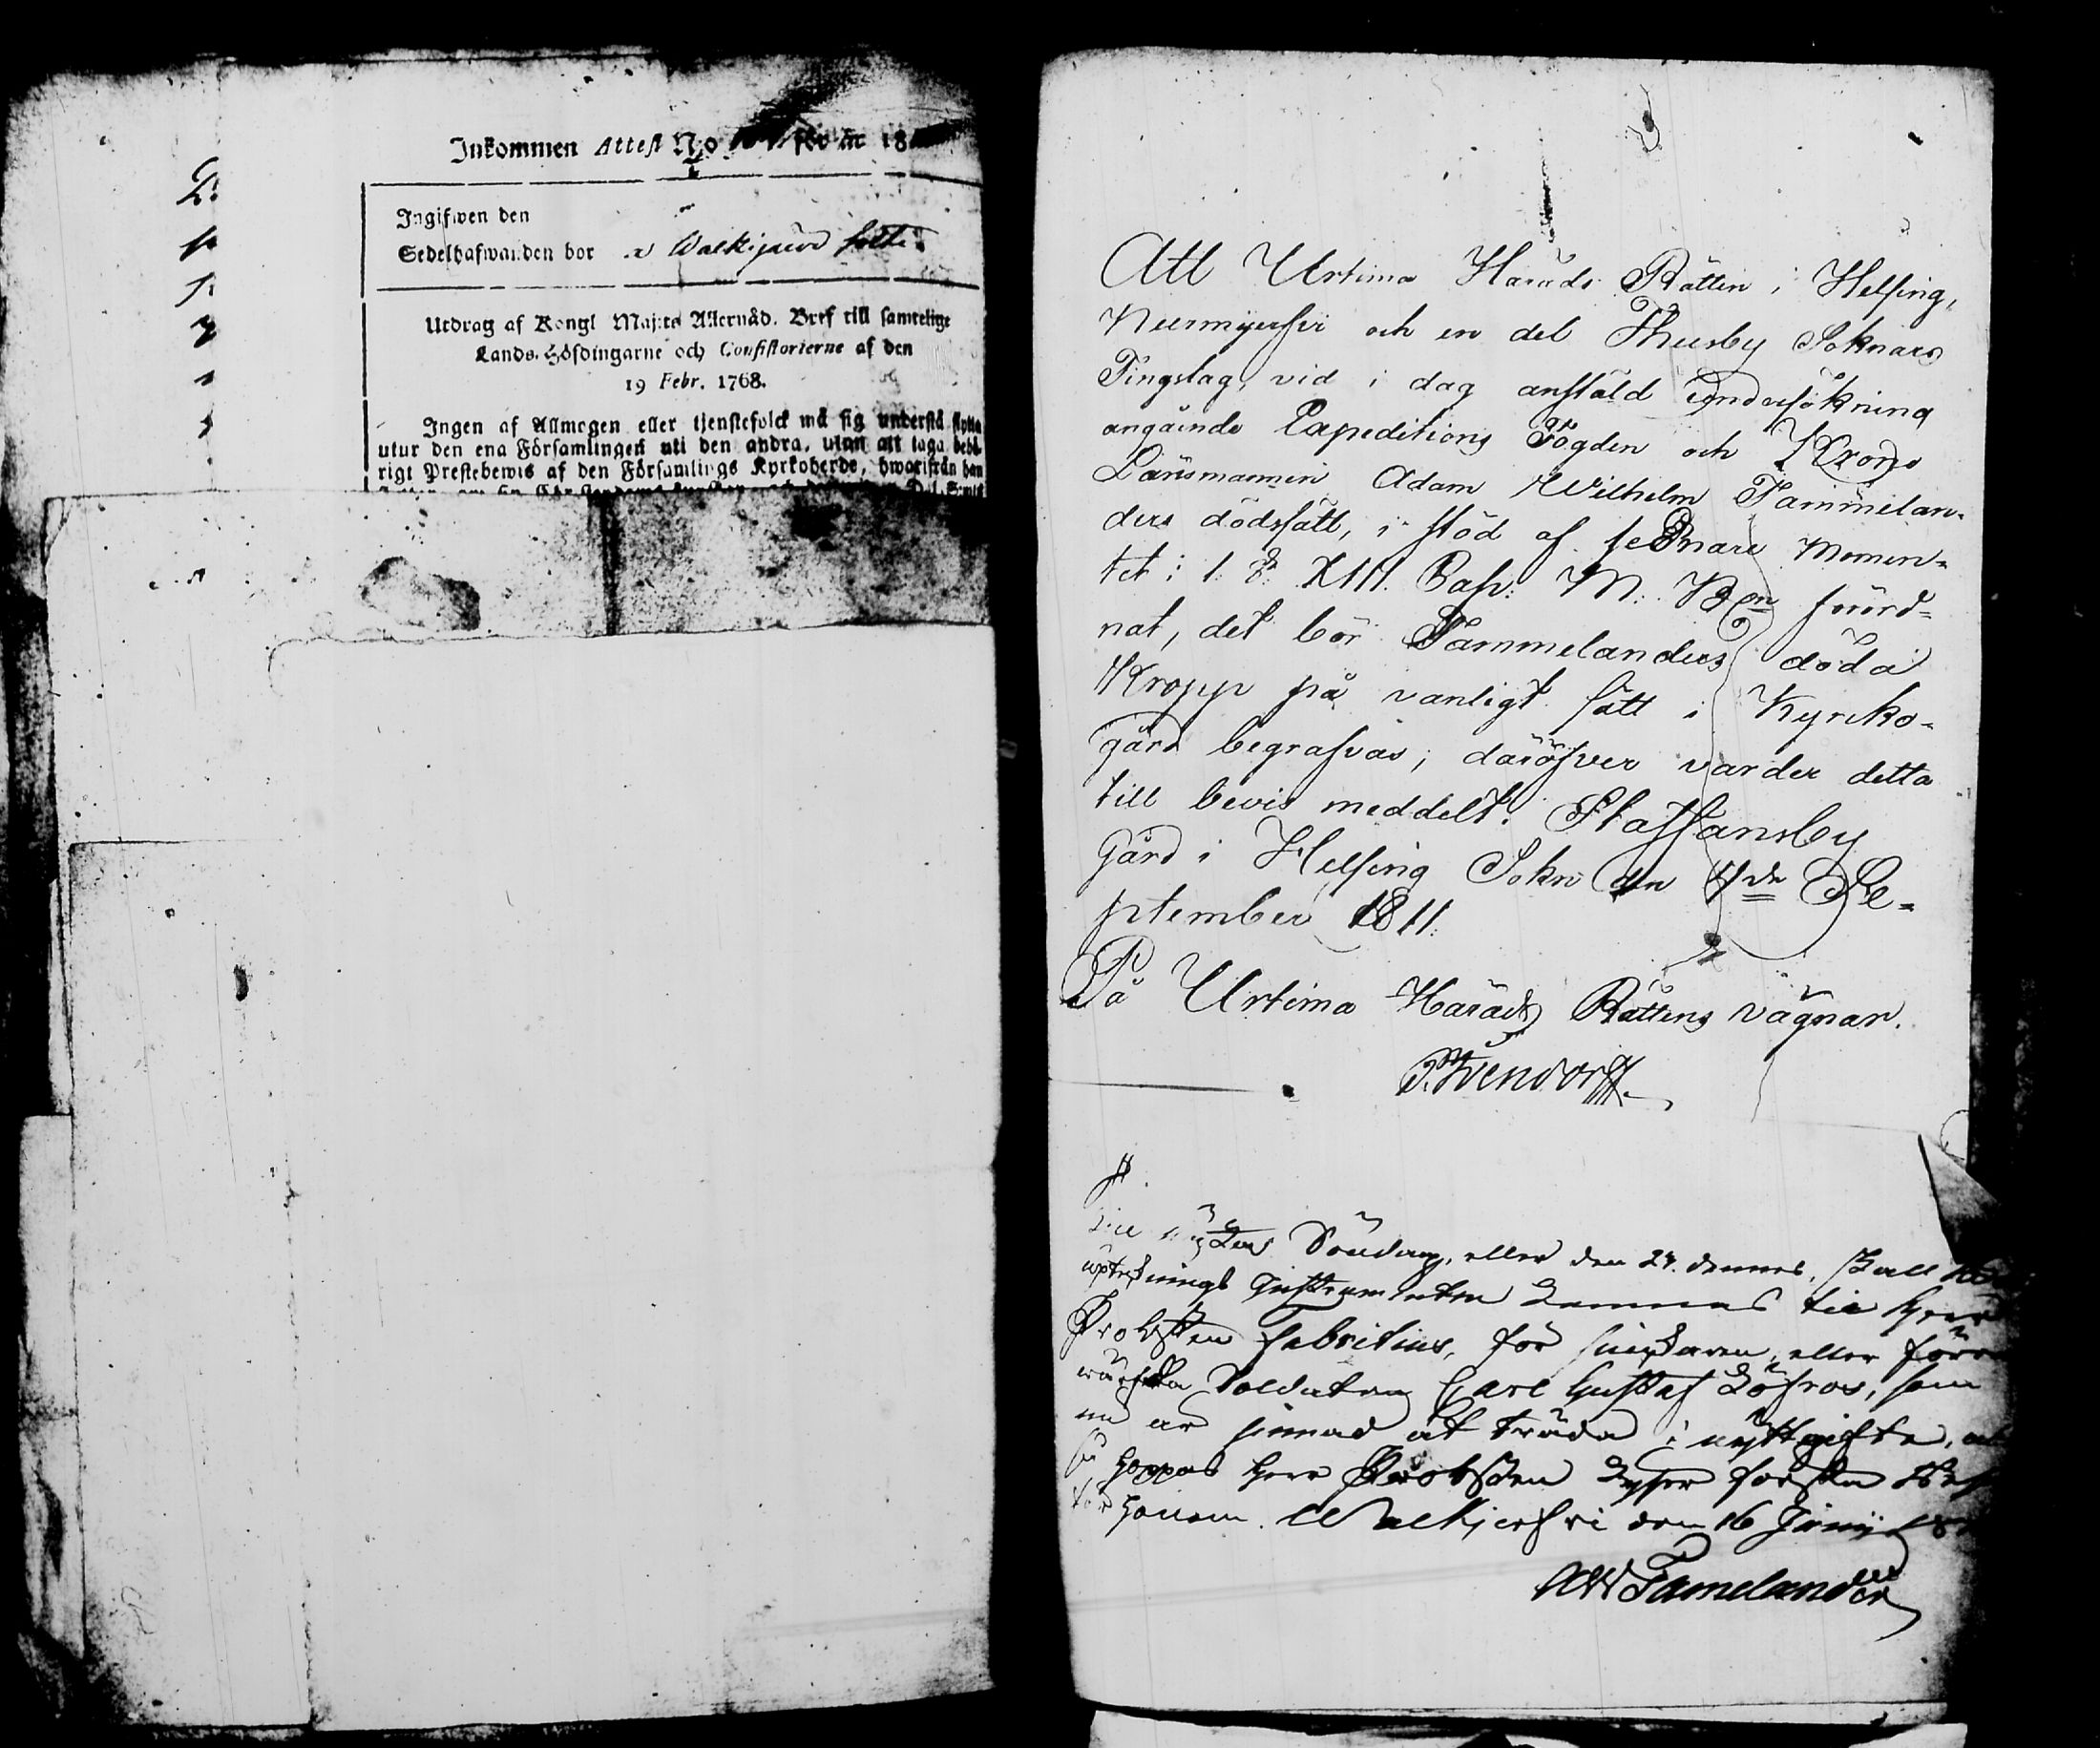 Inkommen Attest No för år 18
Ingifwen den
Sedelhafwanden bor
Utdrag af Kongl Maj:ts Allernåd. Bref till samtelige
Lands-Höfdingarne och Consistorierne af den
19 Febr. 1768.
Ingen af Allmogen eller tjenstefolck må sig understå flytta
utur den ena Församlingen uti den andra, utan att taga behö-
rigt Prestebewis af den Församlings Kyrkoherde, hwarifrån han
Att Urtima Härads Rätten i Helsing,
Nurmijerfvi och en del Thusby Soknars
Tingslag, vid i dag anstäld Undersökning
angående Expeditions Fogden och Krono
Länsmannen Adam Wilhelm Tammelan-
ders dödssätt, i stöd af sednare momen-
tet i 1. §. XIII. Cap: M: B förord-
nat, det bör Tammelanders döda
Kropp på vanligt sätt i Kyrcko-
gård begrafvas; däröfver varder detta
till bevis meddelt. Staffansby
Gård i Helsing Sokn den de Se-
ptember 1811.
På Urtima Härads Rättens vägnar.
Söndag, eller den 24. dennes, skall
upteknings Instrumenten lemnas till Herr
Probsten Fabritius, för enklaren, eller förre
Soldaten Carl Gustaf Löfroos, som
nu är sinnad at träda i nytt gifte,
så hoppas Herr Probsten lyser första
för honom. den 16 Junij
AW Tamelander